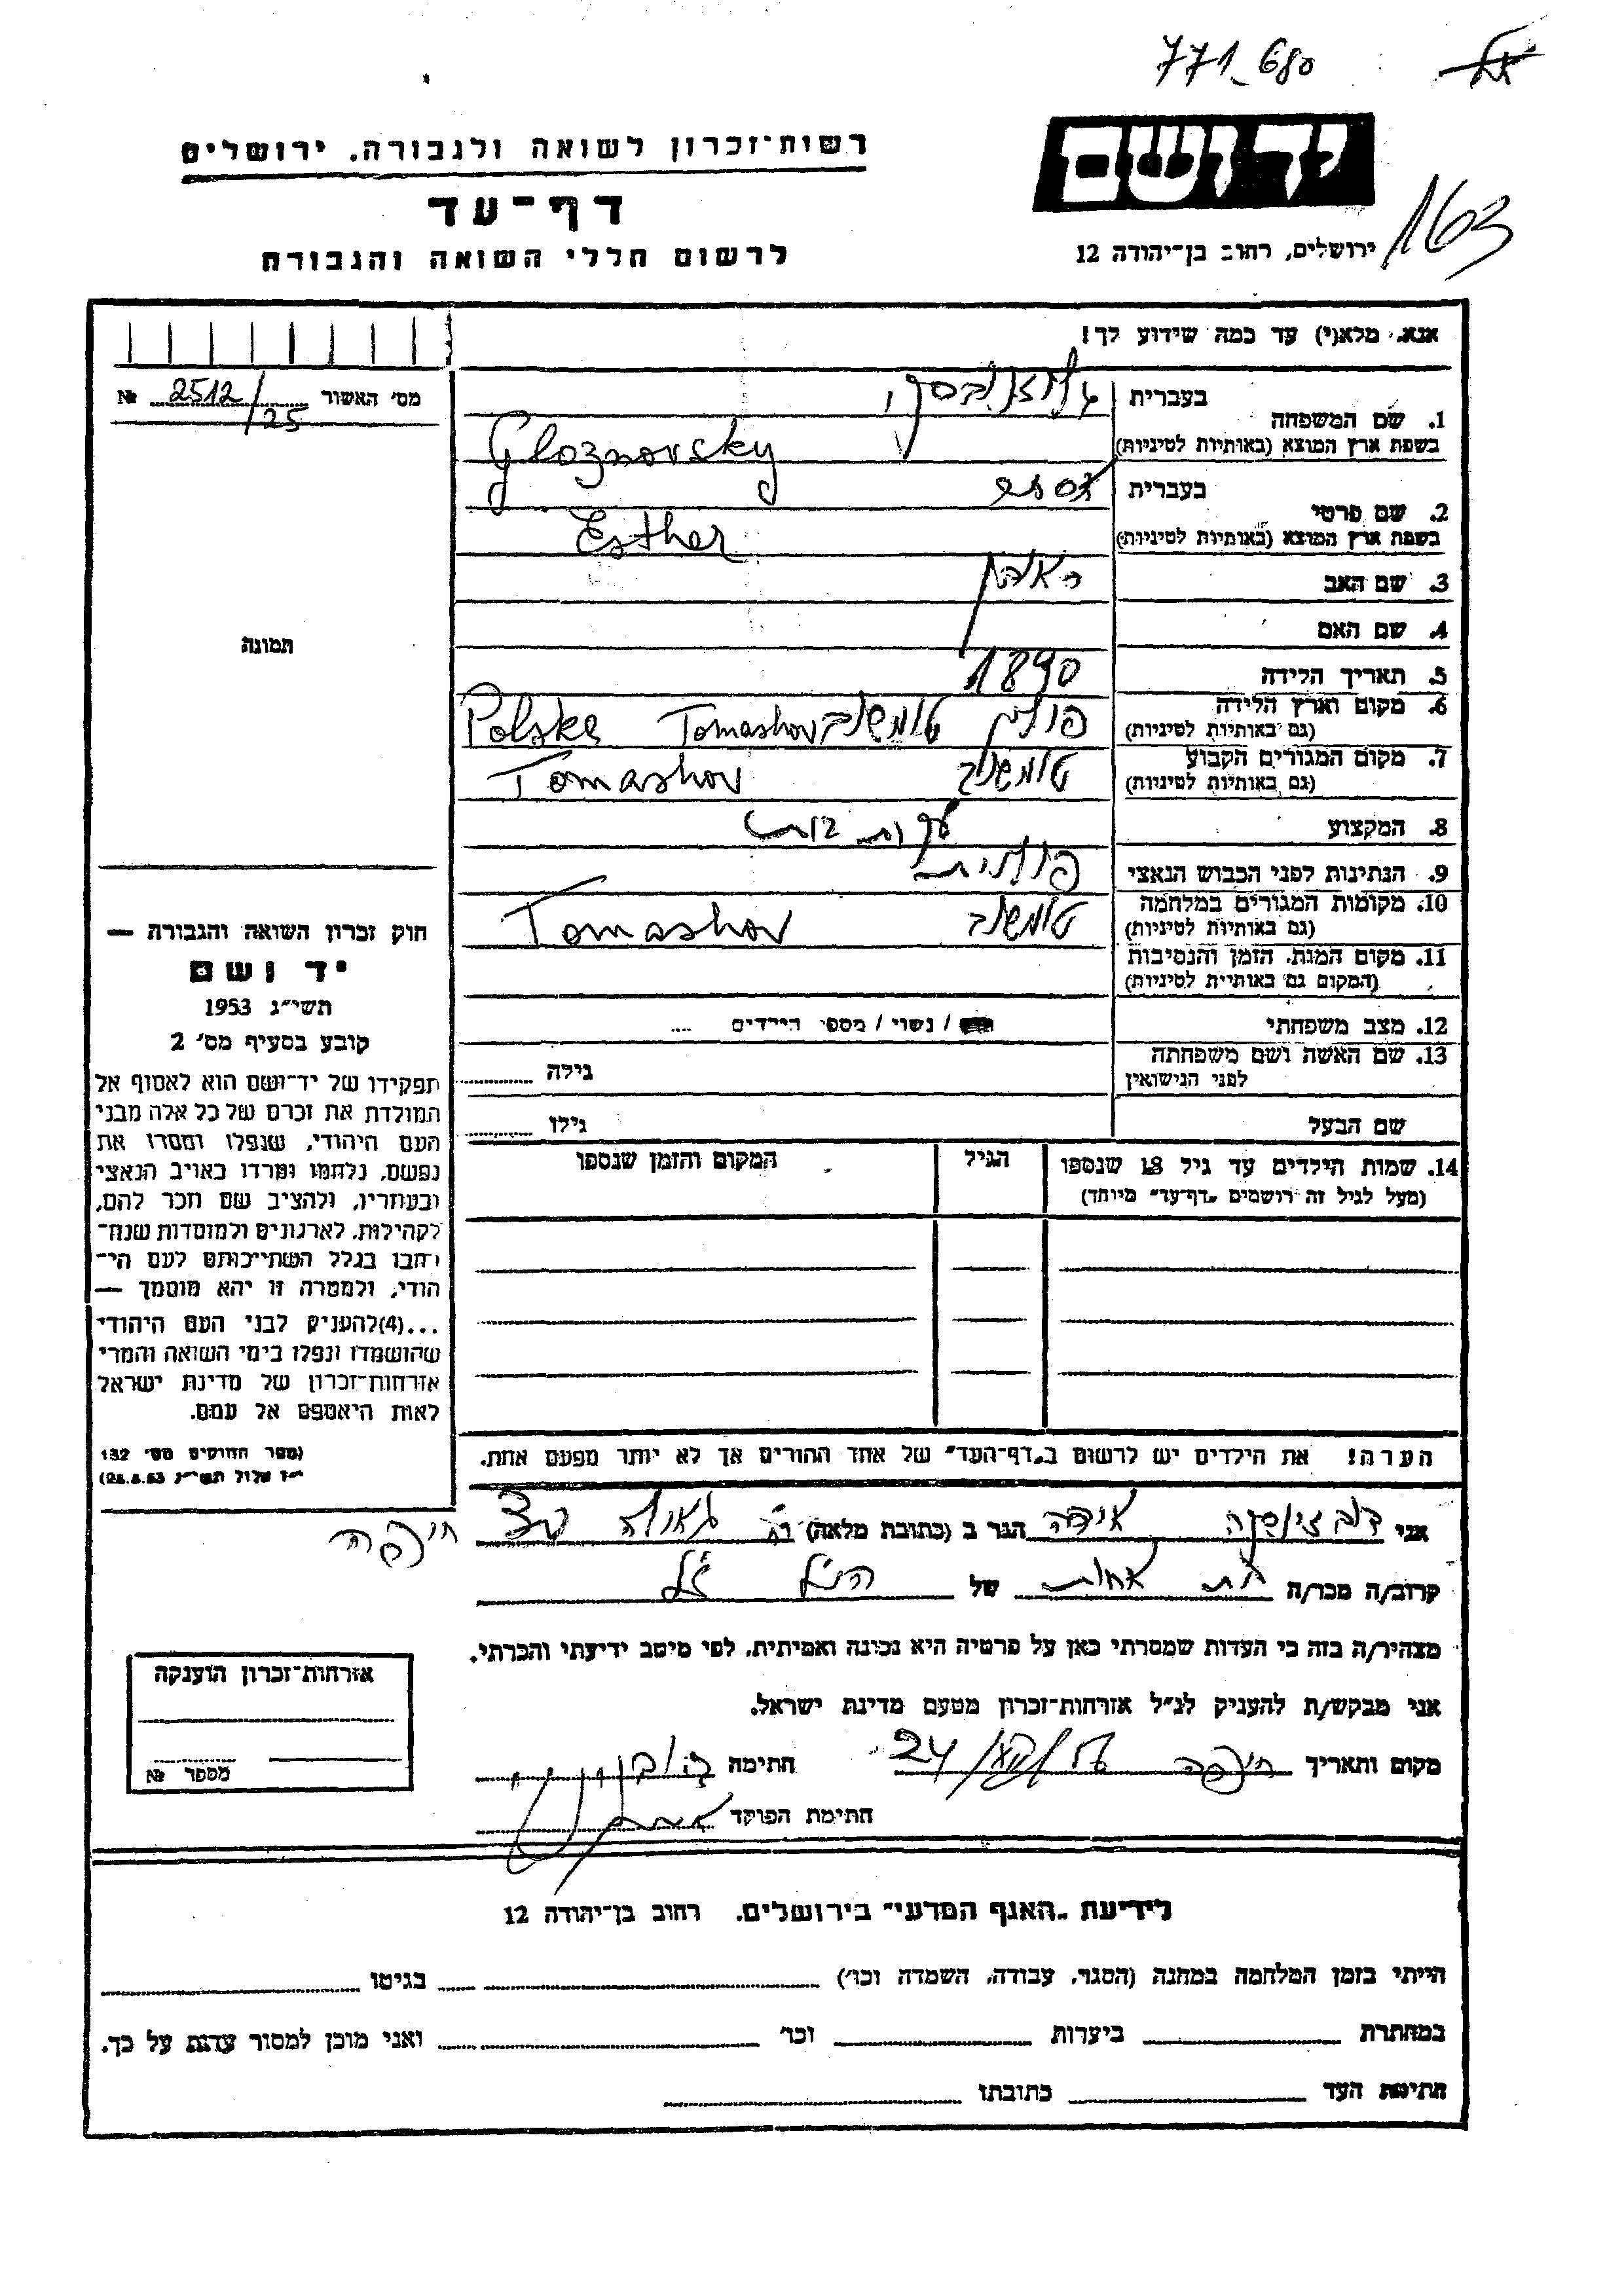 771_680
יד ושם
163
ירושלים, רחוב בן־יהודה 12
רשות־זכרון לשואה ולגבורה, ירושלים
דף־עד
לרשום חללי השואה והגבורה
אנא, מלא(י) עד כמה שידוע לך!
מס׳ האשור 2512/25 №
1. שם המשפחה
בעברית
בשפת ארץ המוצא (באותיות לטיניות) Gloznovsky
2. שם פרטי
בעברית אסתר
בשפת ארץ המוצא (באותיות לטיניות) Esther
3. שם האב
4. שם האם
5. תאריך הלידה 1890
6. מקום וארץ הלידה
(גם באותיות לטיניות) פולין טומשוב Tomashov Polska
7. מקום המגורים הקבוע
(גם באותיות לטיניות) טומשוב Tomashov
8. המקצוע עקרת בית
9. הנתינות לפני הכבוש הנאצי פולנית
10. מקומות המגורים במלחמה
(גם באותיות לטיניות) טומשוב Tomashov
11. מקום המות, הזמן והנסיבות
(המקום גם באותיות לטיניות)
12. מצב משפחתי / נשוי / מספר הילדים ....
13. שם האשה ושם משפחתה
לפני הנישואין
גילה
שם הבעל
גילו
14. שמות הילדים עד גיל 18 שנספו
(מעל לגיל זה רושמים „דף־עד״ מיוחד)
הגיל
המקום והזמן שנספו
הערה! את הילדים יש לרשום ב„דף־העד״ של אחד ההורים אך לא יותר מפעם אחת.
תמונה
חוק זכרון השואה והגבורה —
יד ושם
תשי״ג 1953
קובע בסעיף מס׳ 2
תפקידו של יד־ושם הוא לאסוף אל
המולדת את זכרם של כל אלה מבני
העם היהודי, שנפלו ומסרו את
נפשם, נלחמו ומרדו באויב הנאצי
ובעוזריו, ולהציב שם וזכר להם,
לקהילות, לארגונים ולמוסדות שנח־
רבו בגלל השתייכותם לעם הי־
הודי, ולמטרה זו יהא מוסמך —
...(4)להעניק לבני העם היהודי
שהושמדו ונפלו בימי השואה והמרי
אזרחות־זכרון של מדינת ישראל
לאות היאספם אל עמם.
(ספר החוקים מס׳ 132
י״ז אלול תשי״ג 28.8.53)
אני אידה הגר ב (כתובת מלאה) רח גאולה חיפה
קרוב/ה מכר/ה בת אחות של הנ״ל
מצהיר/ה בזה כי העדות שמסרתי כאן על פרטיה היא נכונה ואמיתית, לפי מיטב ידיעתי והכרתי.
אני מבקש/ת להעניק לנ״ל אזרחות־זכרון מטעם מדינת ישראל.
מקום ותאריך חיפה חתימה
חתימת הפוקד
אזרחות־זכרון הוענקה
מספר №
לידיעת „האגף המדעי״ בירושלים, רחוב בן־יהודה 12
הייתי בזמן המלחמה במחנה (הסגר, עבודה, השמדה וכו׳) בגיטו
במחתרת ביערות וכו׳ ואני מוכן למסור עדות על כך.
חתימת העד כתובתו